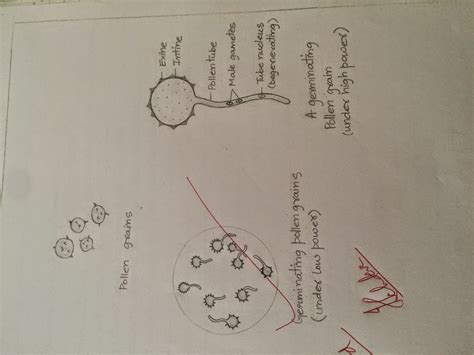 Pollen grains
Germinating pollen grains
(under low power)
Exine
Intine
Pollen tube
Male gametes
Tube nucleus
(degenerating)
A germinating
Pollen grain
(under high power)